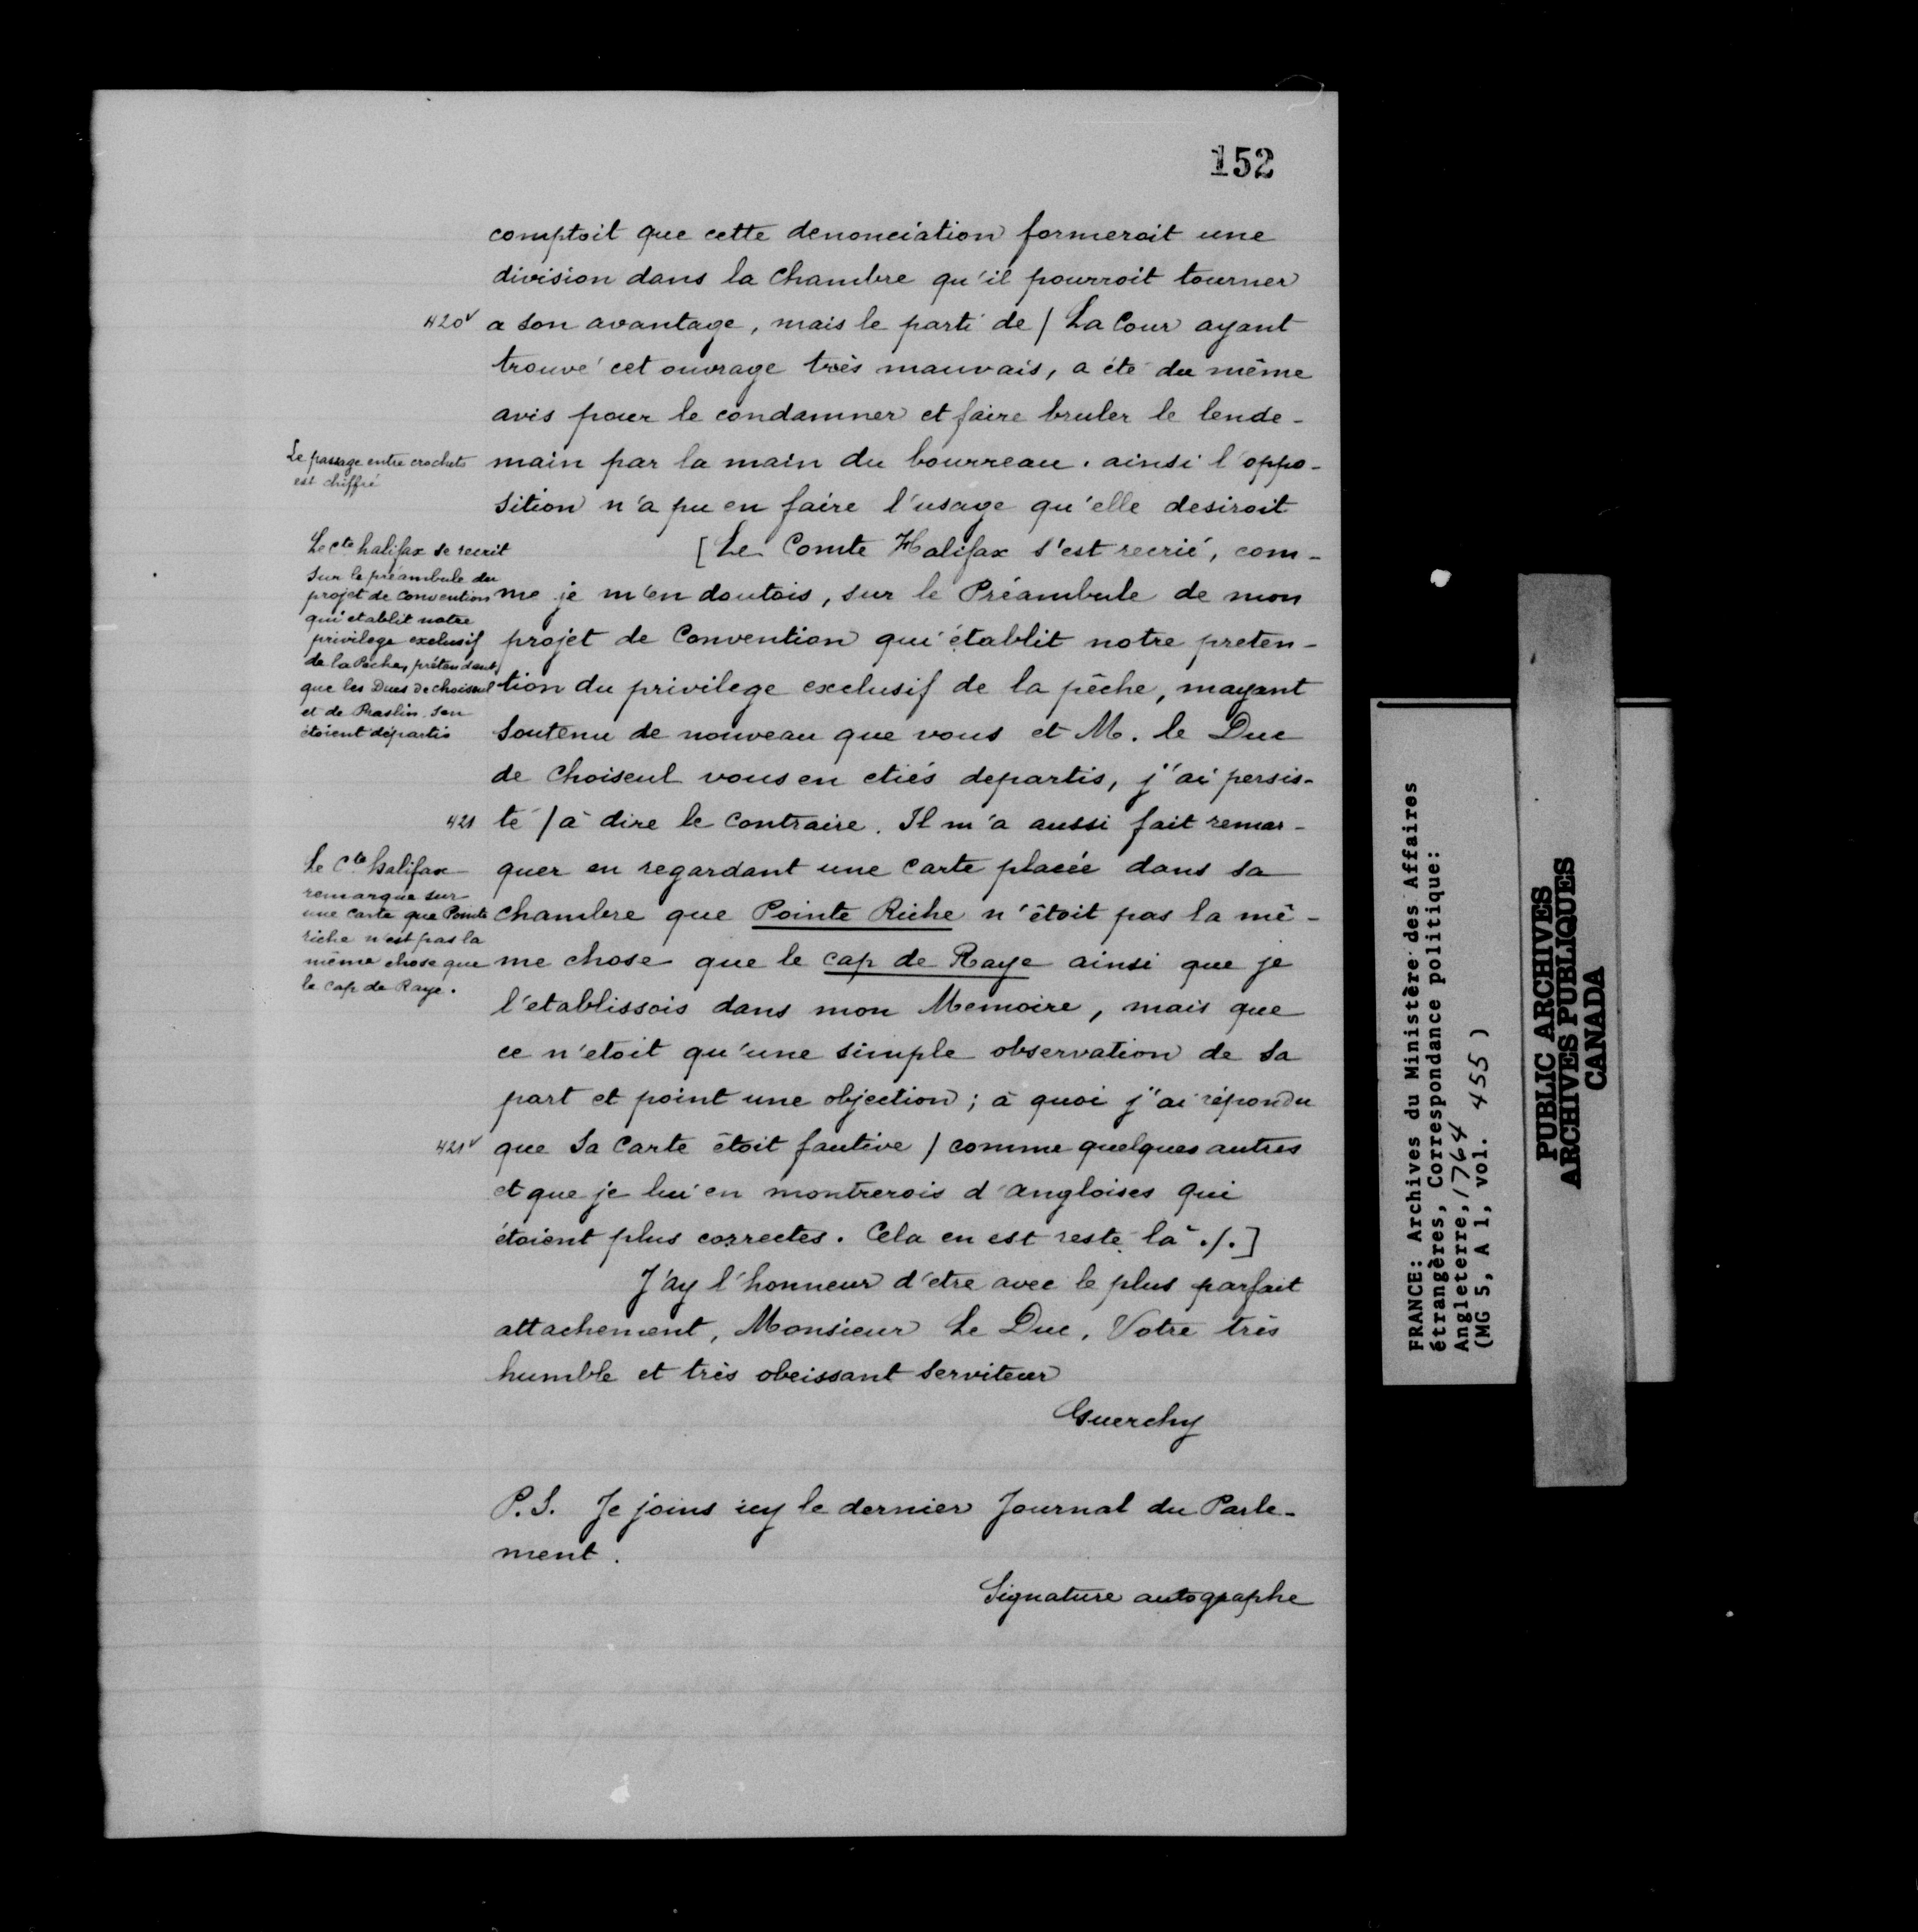 152
comptoit que cette denonciation formeroit une
division dans la Chambre qu'il pourroit tourner
420v a son avantage, mais le parti de / La Cour ayant
trouvé cet ouvrage très mauvais, a été du même
avis pour le condamner et faire bruler le lende-
Le passage entre crochets
est chiffré
main par la main du bourreau. ainsi l'oppo-
sition n'a pu en faire l'usage qu'elle desiroit
Le cte halifax se recrit
sur le préambule du
projet de convention
qui etablit notre
privilege exclusif
de la Pêche, prétendant
que les Ducs de choiseul
et de Praslin s'en
étoient départis
[Le Comte Halifax s'est recrié, com-
me je m'en doutois, sur le Préambule de mon
projet de Convention qui établit notre preten-
tion du privilege exclusif de la pêche, mayant
soutenu de nouveau que vous et M. le Duc
de Choiseul vous en etiés departis, j'ai persis-
421 té / à dire le contraire. Il m'a aussi fait remar-
Le Cte halifax
remarque sur
une carte que Pointe
riche n'est pas la
même chose que
le cap de Raye.
quer en regardant une carte placée dans sa
chambre que Pointe Riche n'étoit pas la mê-
me chose que le cap de Raye ainsi que je
l'etablissois dans mon Memoire, mais que
ce n'etoit qu'une simple observation de sa
part et point une objection; à quoi j'ai répondu
421v que sa carte étoit fautive / comme quelques autres
et que je lui en montrerois d'angloises qui
étoient plus correctes. Cela en est resté là ./.]
J'ay l'honneur d'etre avec le plus parfait
attachement, Monsieur Le Duc, Votre très
humble et très obeissant serviteur
Guerchy
P.S. Je joins icy le dernier Journal du Parle-
ment.
Signature autographe
FRANCE: Archives du Ministère des Affaires
étrangères, Correspondance politique:
Angleterre, 1764
(MG 5, A 1, vol. 455 )
PUBLIC ARCHIVES
ARCHIVES PUBLIQUES
CANADA